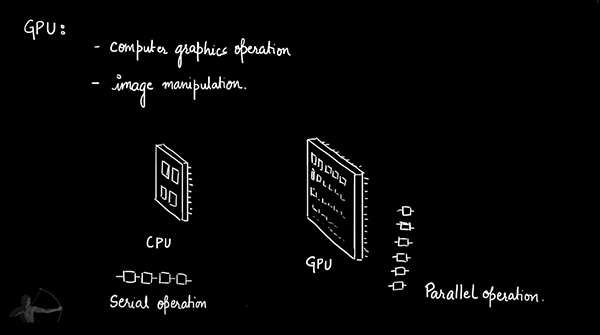 GPU:
- computer graphics operation
- image manipulation.
CPU
GPU
Serial operation
Parallel operation.